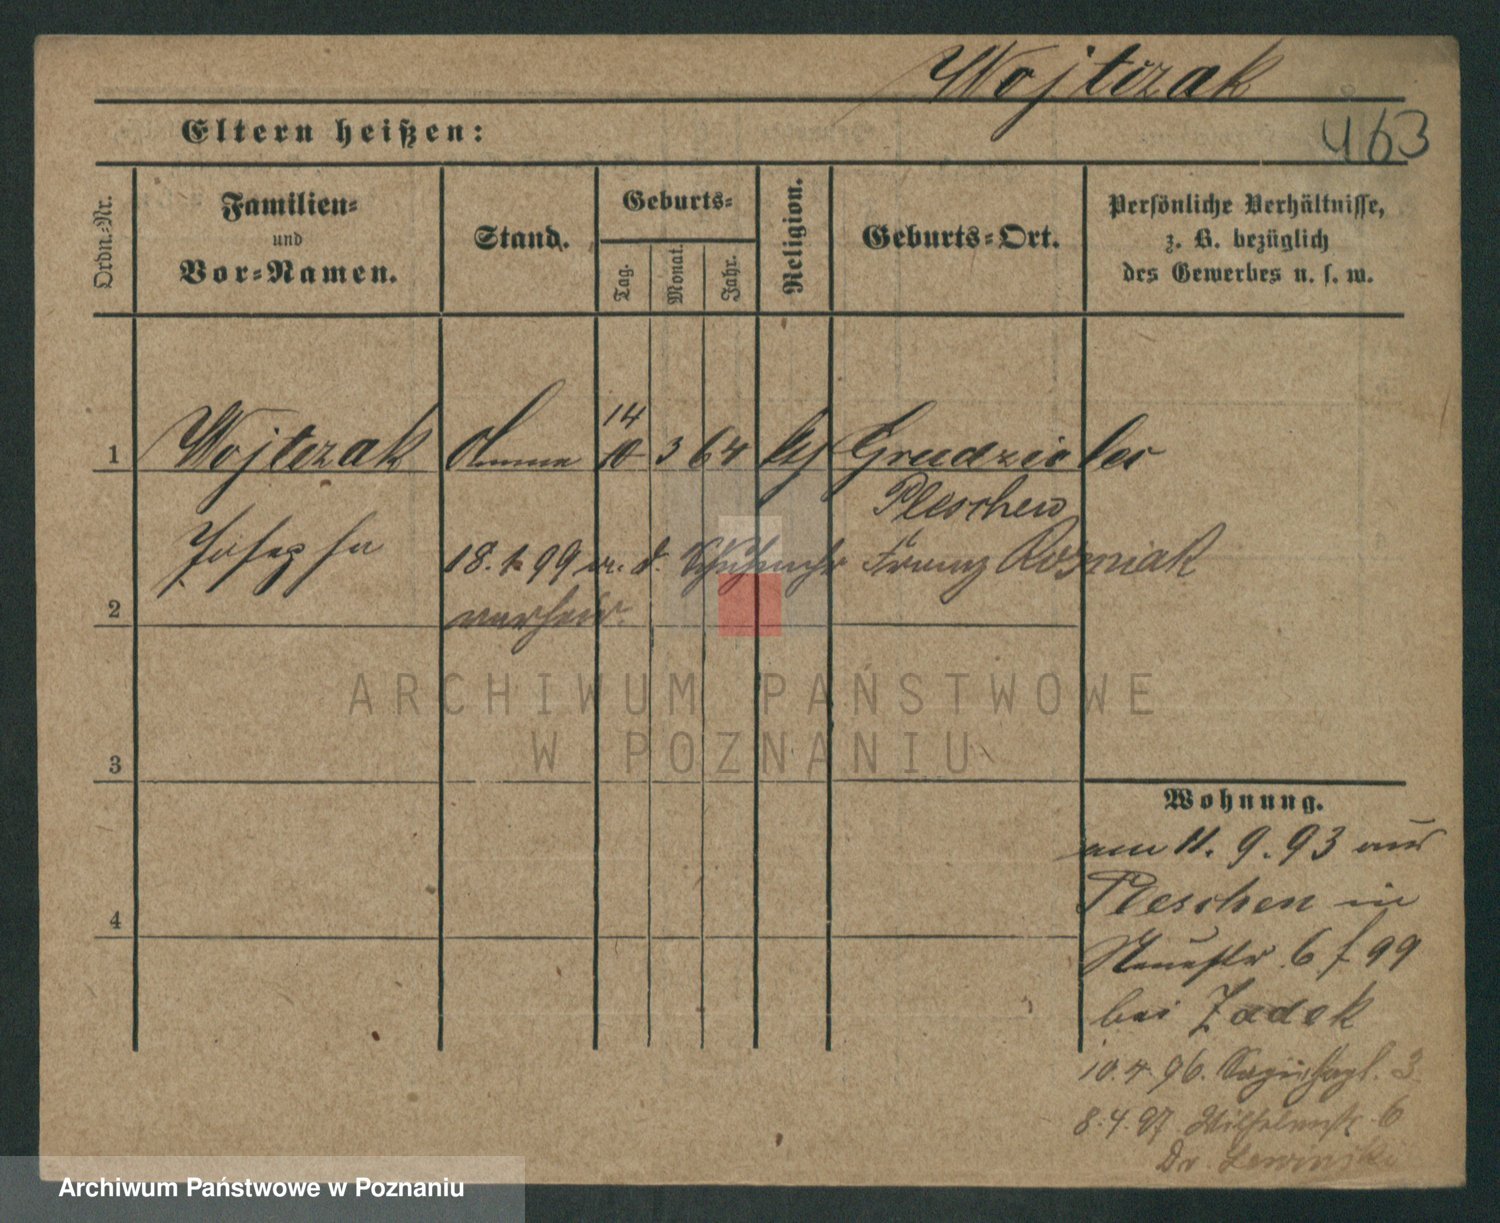 Wojtczak
463
Eltern heißen:
Ordn.-Nr.
Familien-
und
Vor-Namen.
Stand.
Geburts-
Tag.
Monat.
Jahr.
Religion.
Geburts-Ort.
Persönliche Verhältnisse,
z. B. bezüglich
des Gewerbes u. s. w.
14
1 Wojtczak Amme 10 3 64 Grudzielec
Pleschen
Josepha 18.1.99 m. d. Franz Rosmiak
2 verheir.
ARCHIWUM PAŃSTWOWE
W POZNANIU
3
Wohnung.
am 11. 9. 93 aus
Pleschen in
4
Neuestr. 6 f 99
bei Zadek
10.4.96. 3.
8.4.97. Wilhelmstr. 6
Dr. Lewinski
Archiwum Państwowe w Poznaniu